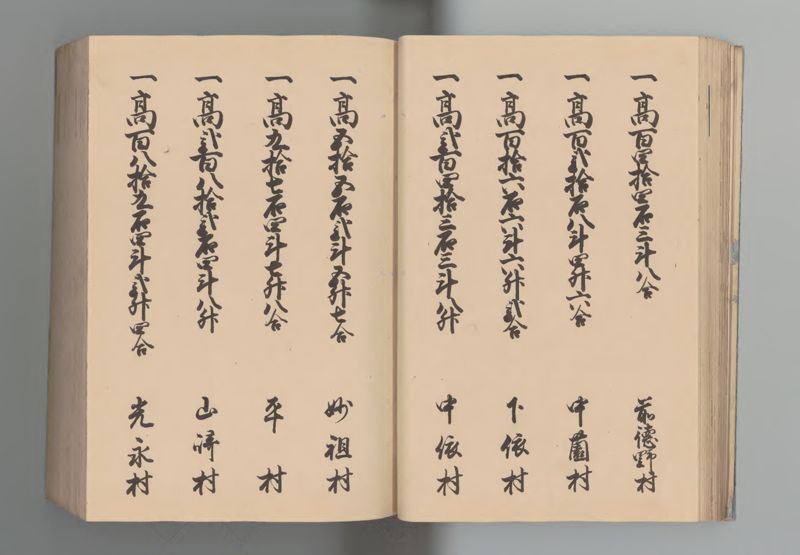 一高百四拾四石三斗八合 前徳野村
一高百弐拾石八斗四升六合 中薗村
一高百拾六石六斗六升弐合 下依村
一高弐百四拾三石三斗八升 中依村
一高五拾五石弐斗五升七合 妙祖村
一高九拾七石四斗七升八合 平村
一高弐百八拾弐石四斗八升 山﨑村
一高百八拾九石四斗弐升四合 光永村